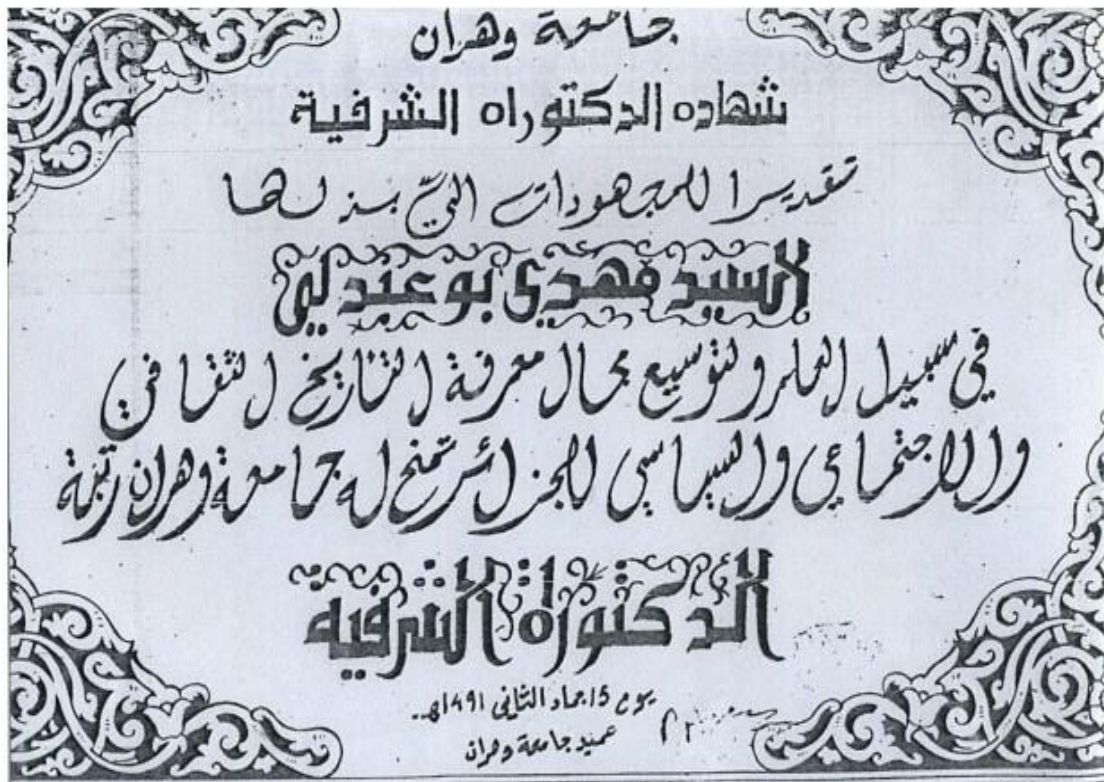 جامعة وهران
شهاده الدكتوراه الشرفية
تقديرا للمجهودات التي بذلها
السيد مهدي بوعبدلي
في سبيل العلم ولتوسيع مجال معرفة التاريخ الثقافي
والاجتماعي والسياسي للجزائر تمنح له جامعة وهران رتبة
الدكتوراه الشرفية
يوم 15 جماد الثاني 1491هـ..
عميد جامعة وهران